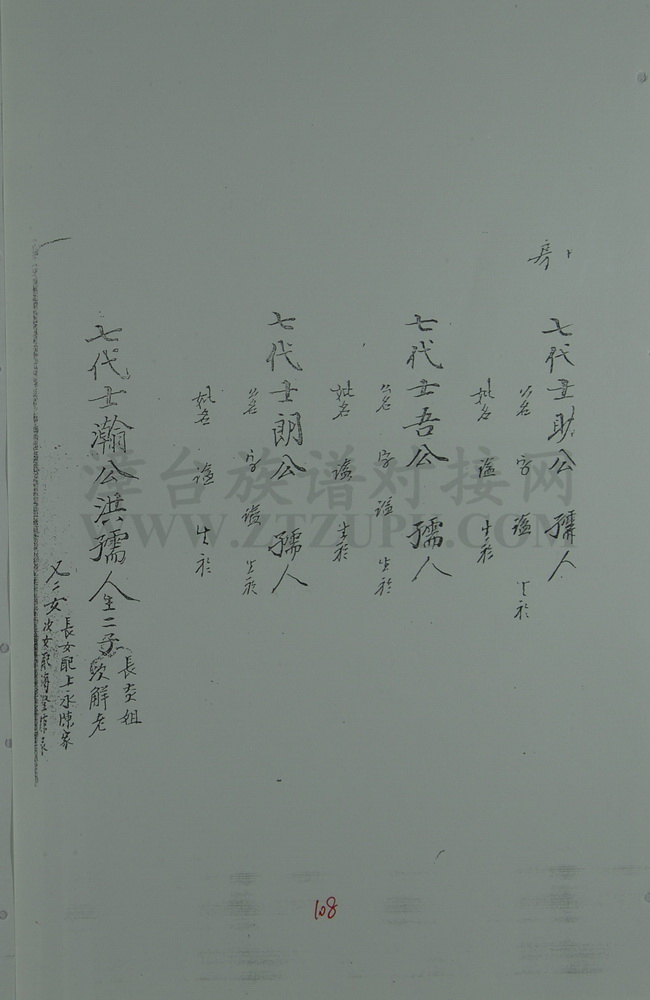 房
七代士助公 孺人
公名 字 謚 生於
妣名 謚 生於
七代士吾公 孺人
公名 字 謚 生於
妣名 謚 生於
七代士朗公 孺人
公名 字 謚 生於
妣名 謚 生於
七代士瀚公洪孺人生二子
長 姐
次解老
又二女
長女配上水陳家
次女
漳台族谱对接网
WWW.ZTZUPU.COM
108